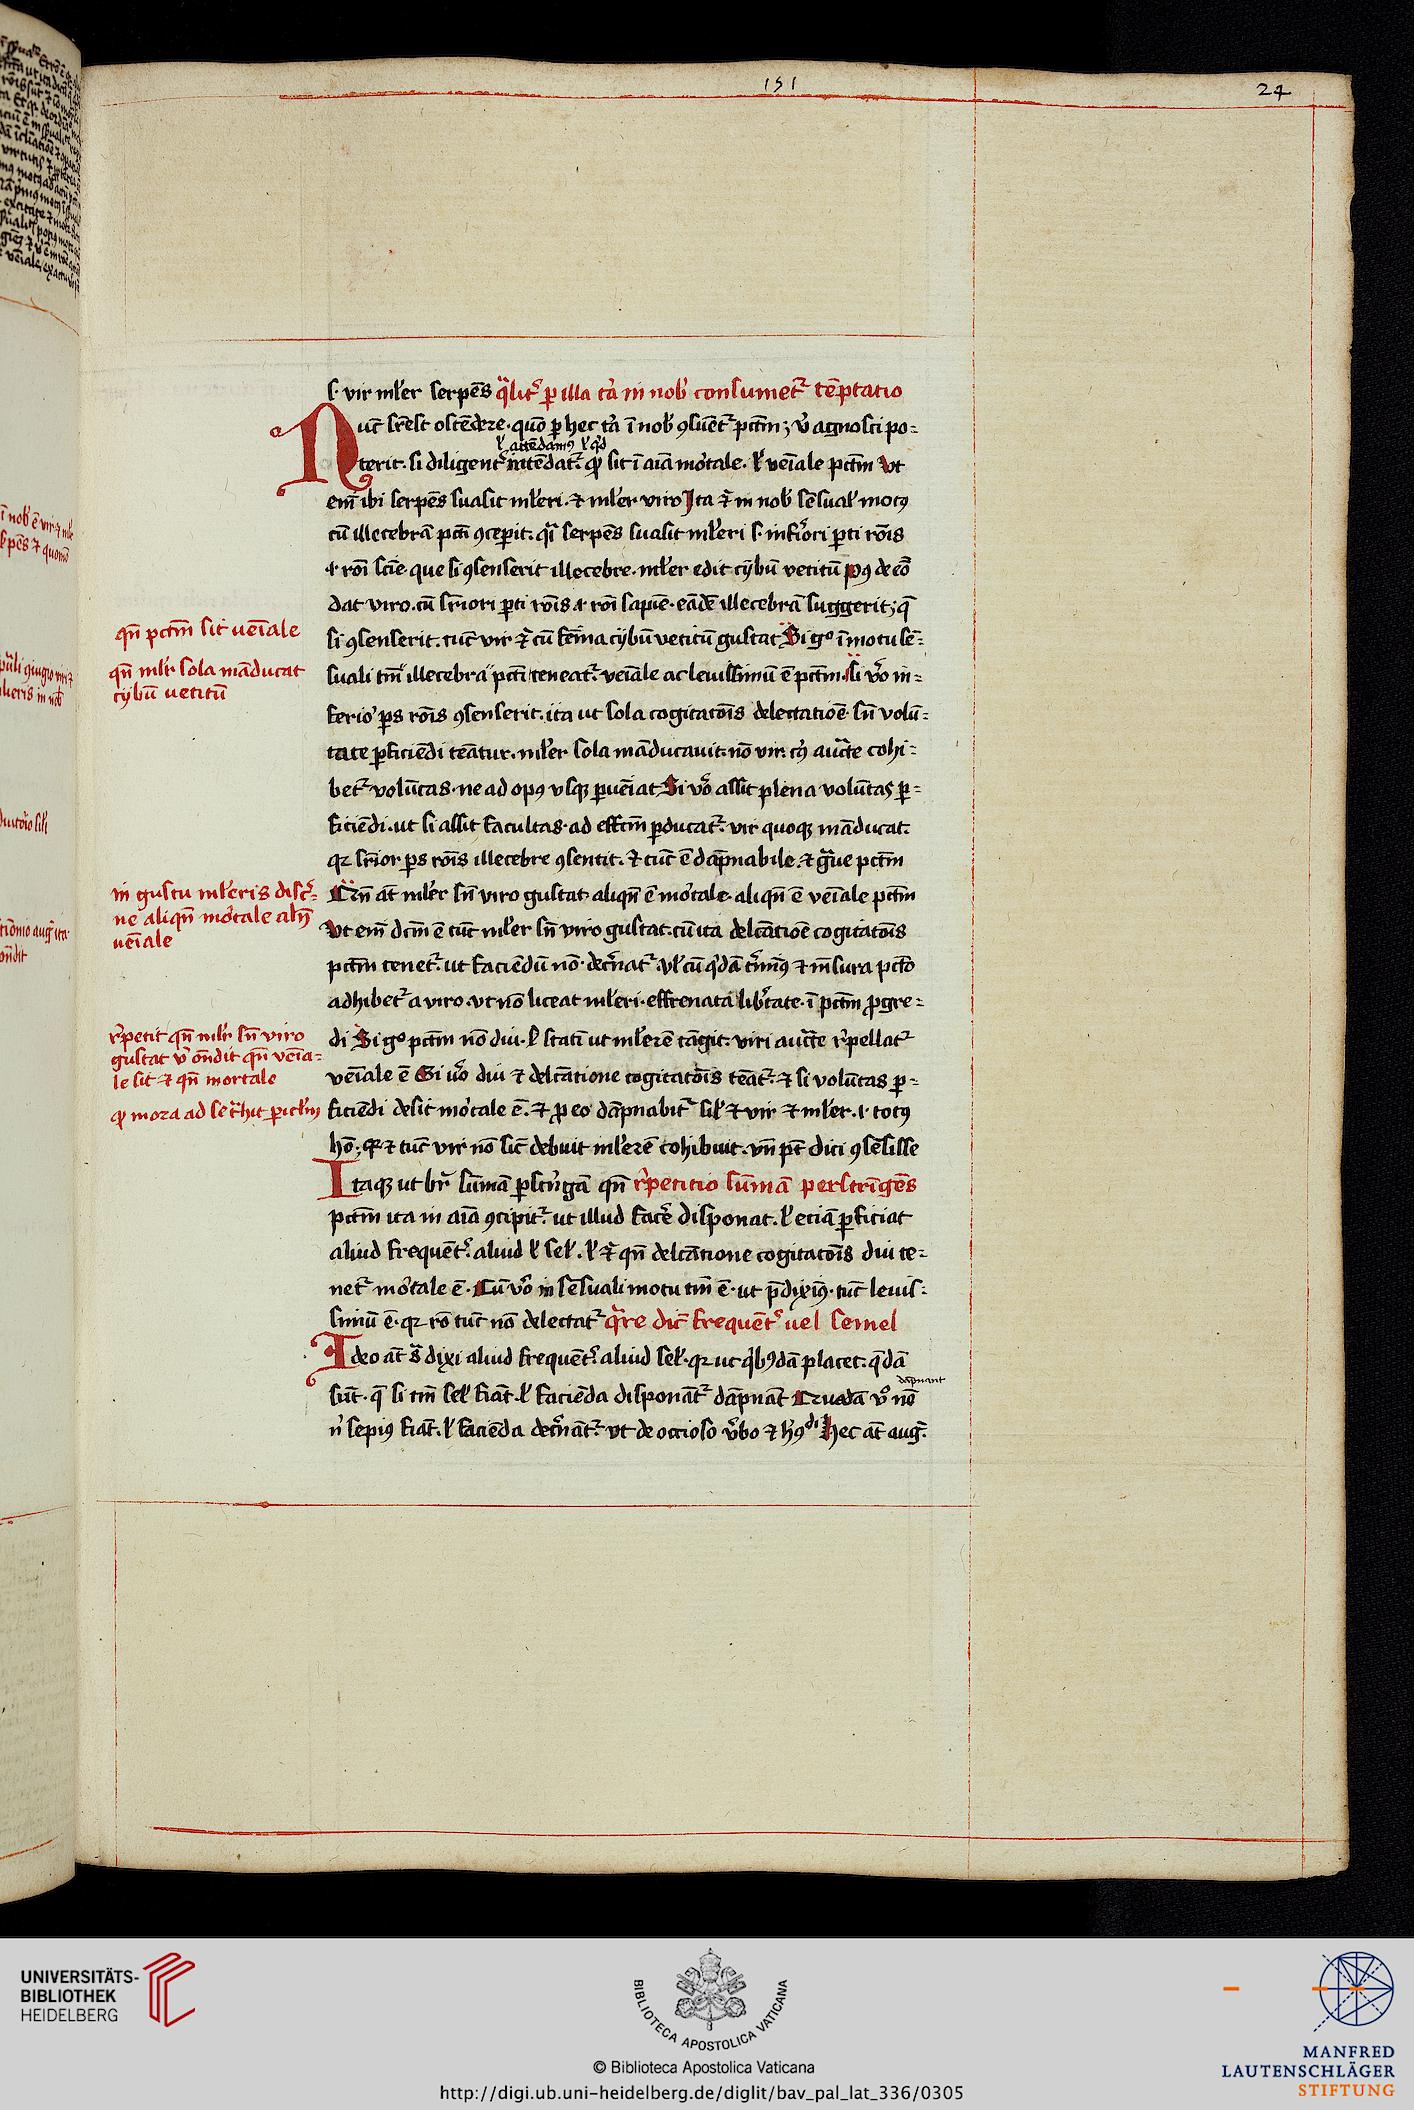 151
24
s. vir mł̉er serpēs q̄̉lit̉ ꝑ illa tⁱa in nob̉ consumet̉ tēptatio
Nūc sr̄est ostēde̅re. quō ꝑ hec tⁱa ī nob̉ ꝯsūet̉ pctm̄; v̉ agnosci po-
ł attēdam̉ ł qd
terit. si diligent̉ intēdat̉. qͥ sit ī aīa mor̉tale. ł veīale pctm̄ Vt
em̄ ibi serpēs suasit mł̉eri. ⁊ mł̉er viro Ita ⁊̉ in nob̉ sēsual̉ motꝰ
cū illecebrā pctī ꝯceperit. qͣi serpēs suasit mł̉eri s. inf̉iori ꝑti rōis
.i. rōi scīe que si ꝯsenserit illecebre. mł̉er edit cybū vetitū Pꝰ de eō
dat viro. cū sr̄iori ꝑti rōis .i. rōi sapīe. eādē illecebrā suggerit; q̄
si ꝯsenserit. tūc vir ⁊̉ cū femīa cybū vetitū gustat Si gͦ ī motu sē-
suali tm̄ illecebra pctī teneat̉. veīale ac leuissimū ē pctm̄. Si v̉o in-
feriỏ ps rōis ꝯsenserit. ita ut sola cogitatōis delectatiōe sn̄ volū-
tate ꝑficiēdi teātur. mł̉er sola māducauit. nō vir. cꝰ auct̄te cohi-
bet̉ volūtas. ne ad opꝰ vsqꝫ ꝑueīat Si v̉o assit plena volūtas ꝑ-
ficiēdi. ut si assit facultas. ad effctm̄ ꝑducat̉. vir quoqꝫ māducat.
qꝛ sr̄ior ps rōis illecebre ꝯsentit. ⁊ tūc ē dāpnabile. ⁊ gͣue pctm̄
Qn̄ āt mł̉er sn̄ viro gustat. aliqn̄ ē mor̉tale. aliqn̄ ē veīale pctm̄
Vt em̄ dcm̄ ē tūc mł̉er sn̄ viro gustat. cū ita delcātiōe cogitatōis
pctm̄ tenet̉. ut faciēdū nō. dec̉nat̉. vł cū qͣdā t̉mīꝰ ⁊ m̄sura pctō
adhibet̉ a viro. vt nō liceat mł̉eri. effrenata lib̉tate. ī pctm̄ ꝓgre-
di Si gͦ pctm̄ nō diu. s̉ statī ut mł̉erē tāgit. viri auct̄te r̉pellat̉
veīale ē Si v̉o diu ⁊ delcātione cogitatōis teāt̉. ⁊ si volūtas ꝑ-
ficiēdi desit mor̉tale ē. ⁊ ꝓ eo dāpnabit̉ sił ⁊ vir ⁊ mł̉er. .i. totꝰ
hō; qꝛ ⁊ tūc vir nō sic̄ debuit mł̉erē cohibuit. vn̄ pt̄ dici ꝯsēsisse
Itaqꝫ ut br̉ sūmā ꝑst̉ngā qn̄ r̉petitio sūmā perstrīgēs
pctm̄ ita in aīa ꝯcipit̉. ut illud face̅ disponat. ł etiā ꝑficiat
aliud frequēt̉. aliud ł seł. ł ⁊̉ qn̄ delcātione cogitatōis diu te-
net̉ mor̉tale ē. Cū v̉o in sēsuali motu tm̄ ē. ut p̄diximꝰ. tūc leuis-
simū ē. qꝛ rō tūc nō delectat̉ qͣre dic̄ frequēt̉ uel semel
Ideo āt s̄ dixi aliud frequēt̉. aliud seł. qꝛ ut qͥbꝰdā placet. q̄dā
dāpnant
sūt. q̄ si tm̄ seł fiāt. ł faciēda disponāt̉ dāpnāt Quedā v̉o nō
n̉ sepiꝰ fiāt. ł faciēda dec̉nāt̉. vt de occioso v̉bo ⁊ hꝰdi Hec āt aug̉.
qn̄ pctm̄ sit ueīale
qn̄ mł̉r sola māducat
cybū vetitū
in gustu mł̉eris disc̉-
ne aliqn̄ mor̉tale alqn̄
ueīale
r̉petit qn̄ mł̉r sn̄ viro
gustat v̉ on̄dit qn̄ veīa-
le sit ⁊ qn̄ mortale
UNIVERSITÄTS-
BIBLIOTHEK
HEIDELBERG
BIBLIOTECA APOSTOLICA VATICANA
© Biblioteca Apostolica Vaticana
http://digi.ub.uni-heidelberg.de/diglit/bav_pal_lat_336/0305
MANFRED
LAUTENSCHLÄGER
STIFTUNG